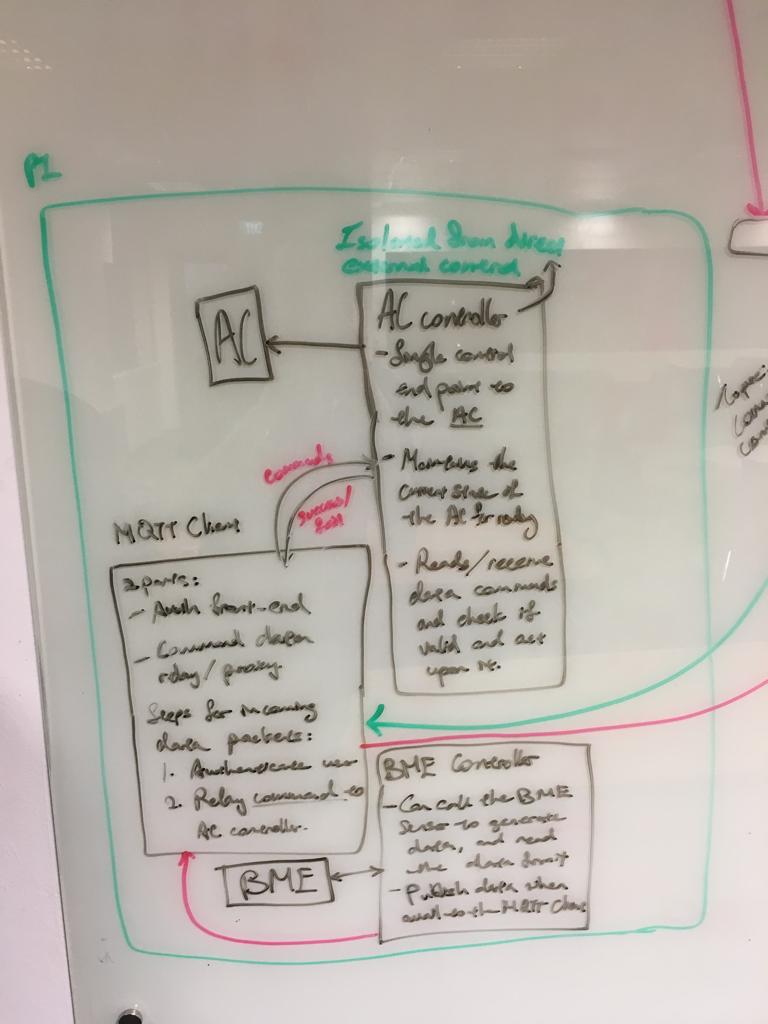 PI
Isolated from direct
external control
AC
AC controller
- Single control
end point to
the AC
- Maintains the
current state of
the AC for relay
- Reads/receive
data commands
and check if
valid and act
upon it.
Commands
Success/
fail
MQTT Client
2 parts:
- Auth front-end
- Command data
relay/proxy
Steps for incoming
data packets:
1. Authenticate user
2. Relay command to
AC controller.
BME Controller
- Can call the BME
sensor to generate
data, and read
the data from it
- Publish data when
avail to the MQTT Client
BME